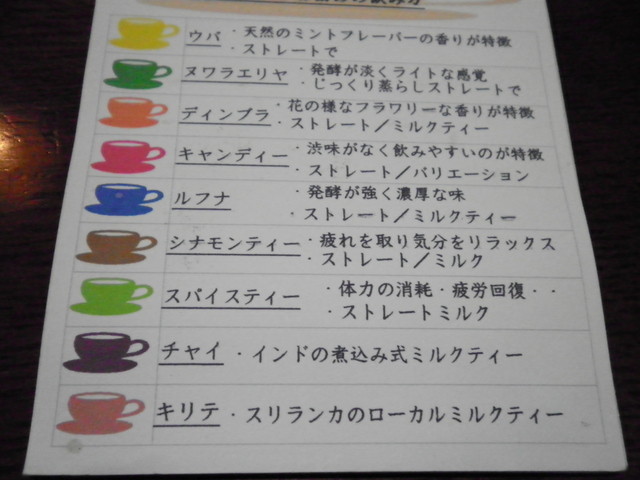 ウバ ・天然のミントフレーバーの香りが特徴
・ストレートで
ヌワラエリヤ ・発酵が淡くライトな感覚
・じっくり蒸らしストレートで
ディンブラ ・花の様なフラワリーな香りが特徴
・ストレート／ミルクティー
キャンディー ・渋味がなく飲みやすいのが特徴
・ストレート／バリエーション
ルフナ ・発酵が強く濃厚な味
・ストレート／ミルクティー
シナモンティー ・疲れを取り気分をリラックス
・ストレート／ミルク
スパイスティー ・体力の消耗・疲労回復・・
・ストレートミルク
チャイ ・インドの煮込み式ミルクティー
キリテ ・スリランカのローカルミルクティー